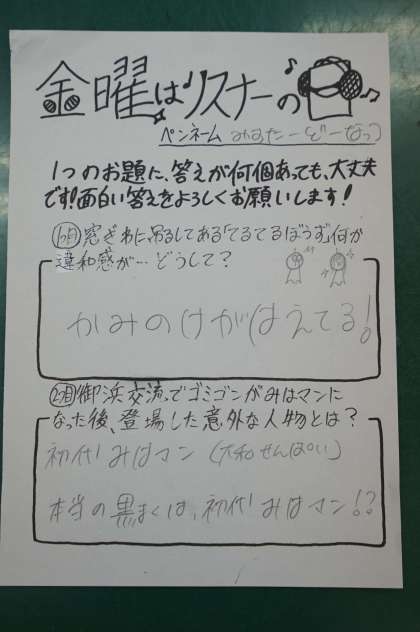 金曜はリスナーの
ペンネーム みすたーどーなつ
1つのお題に、答えが何個あっても、大丈夫
です!面白い答えをよろしくお願いします!
1つ目 窓ぎわに、吊るしてある「てるてるぼうず」何か
違和感が…どうして?
かみのけがはえてる!
2つ目 御浜交流でゴミゴンがみはマンに
なった後、登場した意外な人物とは?
初代みはマン (大和せんぱい)
本当の黒まくは、初代みはマン!?